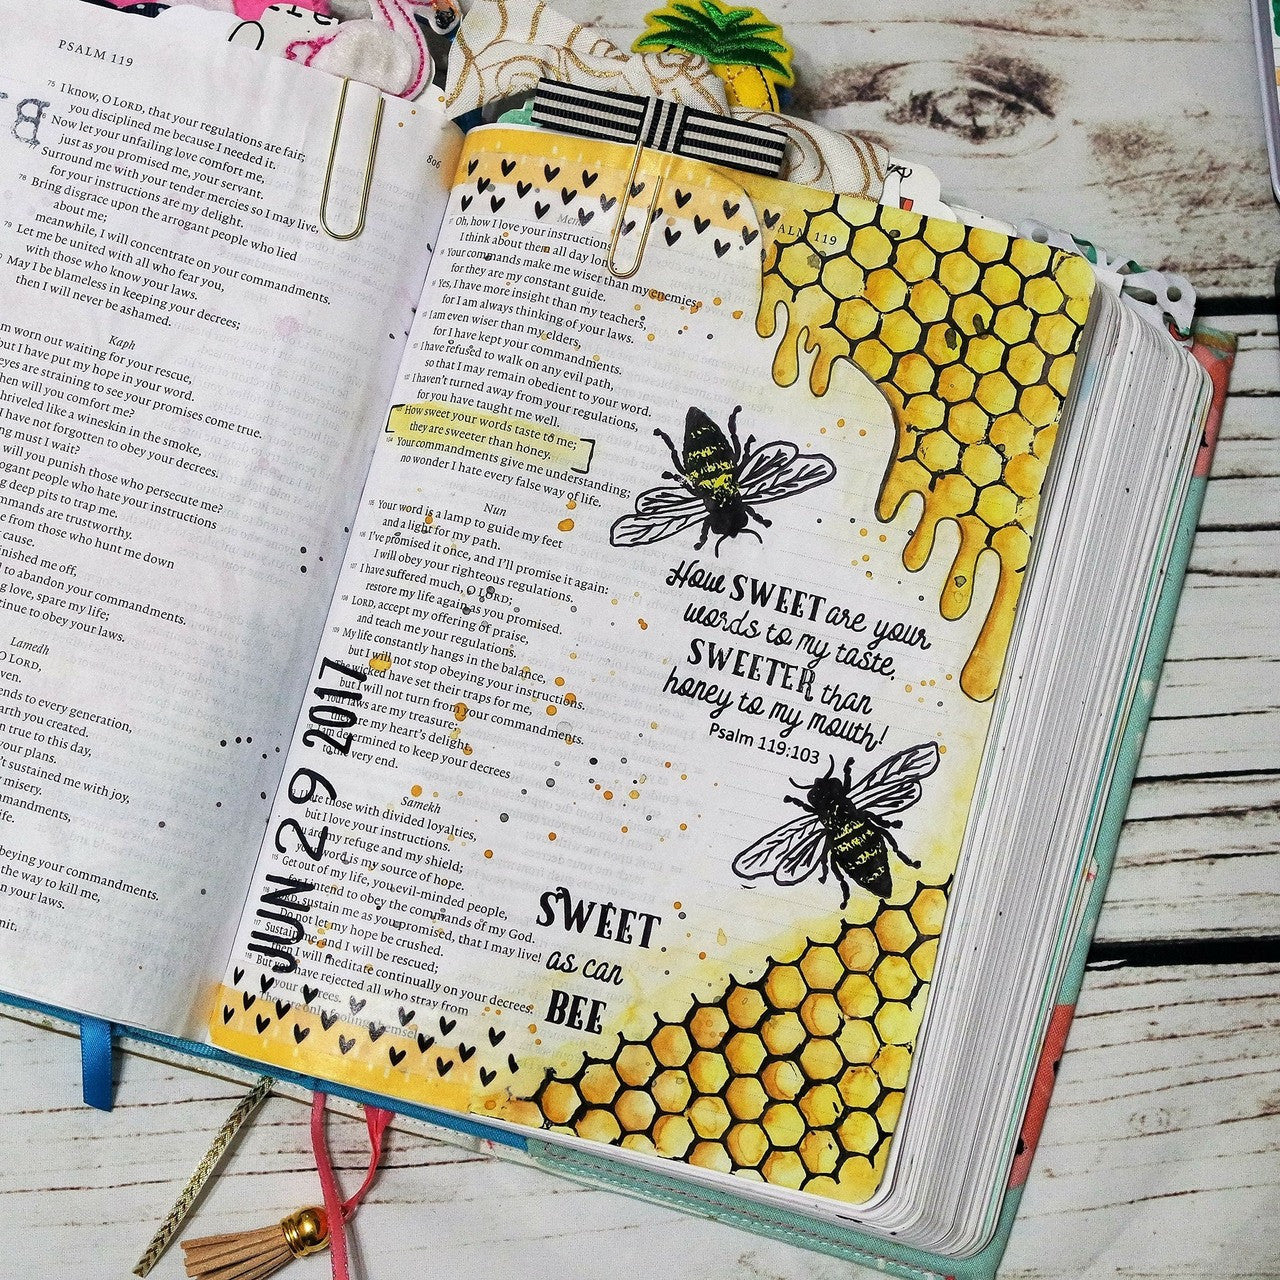 PSALM 119
75 I know, O LORD, that your regulations are fair;
you disciplined me because I needed it.
Now let your unfailing love comfort me,
just as you promised me, your servant.
Surround me with your tender mercies so I may live,
for your instructions are my delight.
78 Bring disgrace upon the arrogant people who lied
about me;
meanwhile, I will concentrate on your commandments.
79 Let me be united with all who fear you,
with those who know your laws.
May I be blameless in keeping your decrees;
then I will never be ashamed.
Kaph
worn out waiting for your rescue,
but I have put my hope in your word.
eyes are straining to see your promises come true.
will you comfort me?
shriveled like a wineskin in the smoke,
I have not forgotten to obey your decrees.
must I wait?
will you punish those who persecute me?
people who hate your instructions
deep pits to trap me.
commands are trustworthy.
from those who hunt me down
cause.
finished me off,
to abandon your commandments.
love, spare my life;
continue to obey your laws.
Lamedh
O LORD,
extends to every generation,
earth you created.
true to this day,
your plans.
sustained me with joy,
misery.
commandments,
life.
obeying your commandments.
the way to kill me,
on your laws.
806
PSALM 119
Oh, how I love your instructions
I think about them all day long
Your commands make me wiser than my enemies,
for they are my constant guide.
Yes, I have more insight than my teachers,
for I am always thinking of your laws.
I am even wiser than my elders,
for I have kept your commandments.
I have refused to walk on any evil path,
so that I may remain obedient to your word.
I haven't turned away from your regulations,
for you have taught me well.
How sweet your words taste to me;
they are sweeter than honey.
Your commandments give me understanding;
no wonder I hate every false way of life.
Nun
105 Your word is a lamp to guide my feet
and a light for my path.
106 I've promised it once, and I'll promise it again:
I will obey your righteous regulations.
107 I have suffered much, O LORD;
restore my life again as you promised.
108 LORD, accept my offering of praise,
and teach me your regulations.
109 My life constantly hangs in the balance,
but I will not stop obeying your instructions.
The wicked have set their traps for me,
but I will not turn from your commandments.
Your laws are my treasure;
they are my heart's delight.
I am determined to keep your decrees
to the very end.
Samekh
I hate those with divided loyalties,
but I love your instructions.
You are my refuge and my shield;
your word is my source of hope.
115 Get out of my life, you evil-minded people,
for I intend to obey the commands of my God.
116 LORD, sustain me as you promised, that I may live!
Do not let my hope be crushed.
117 Sustain me, and I will be rescued;
then I will meditate continually on your decrees.
118 But you have rejected all who stray from
your decrees.
They are only fooling themselves
JUN 29 2017
How SWEET are your
words to my taste,
SWEETER than
honey to my mouth!
Psalm 119:103
SWEET
as can
BEE